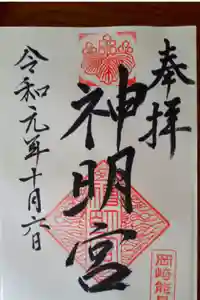 奉拝
神明宮
令和元年十月六日
岡崎能見